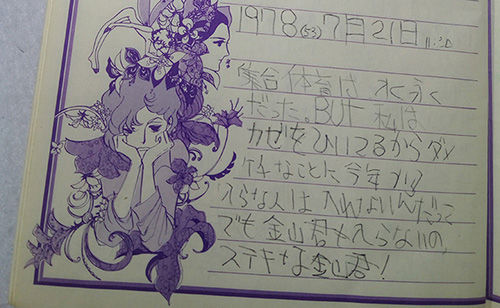 1978(53)7月21日 11:30
集合体育は 水泳
だった。BUT 私は
カゼをひいてるからダメ
なことに今年
入らな人は入れないんだって
でも金山君も入らないの,
ステキな金山君!